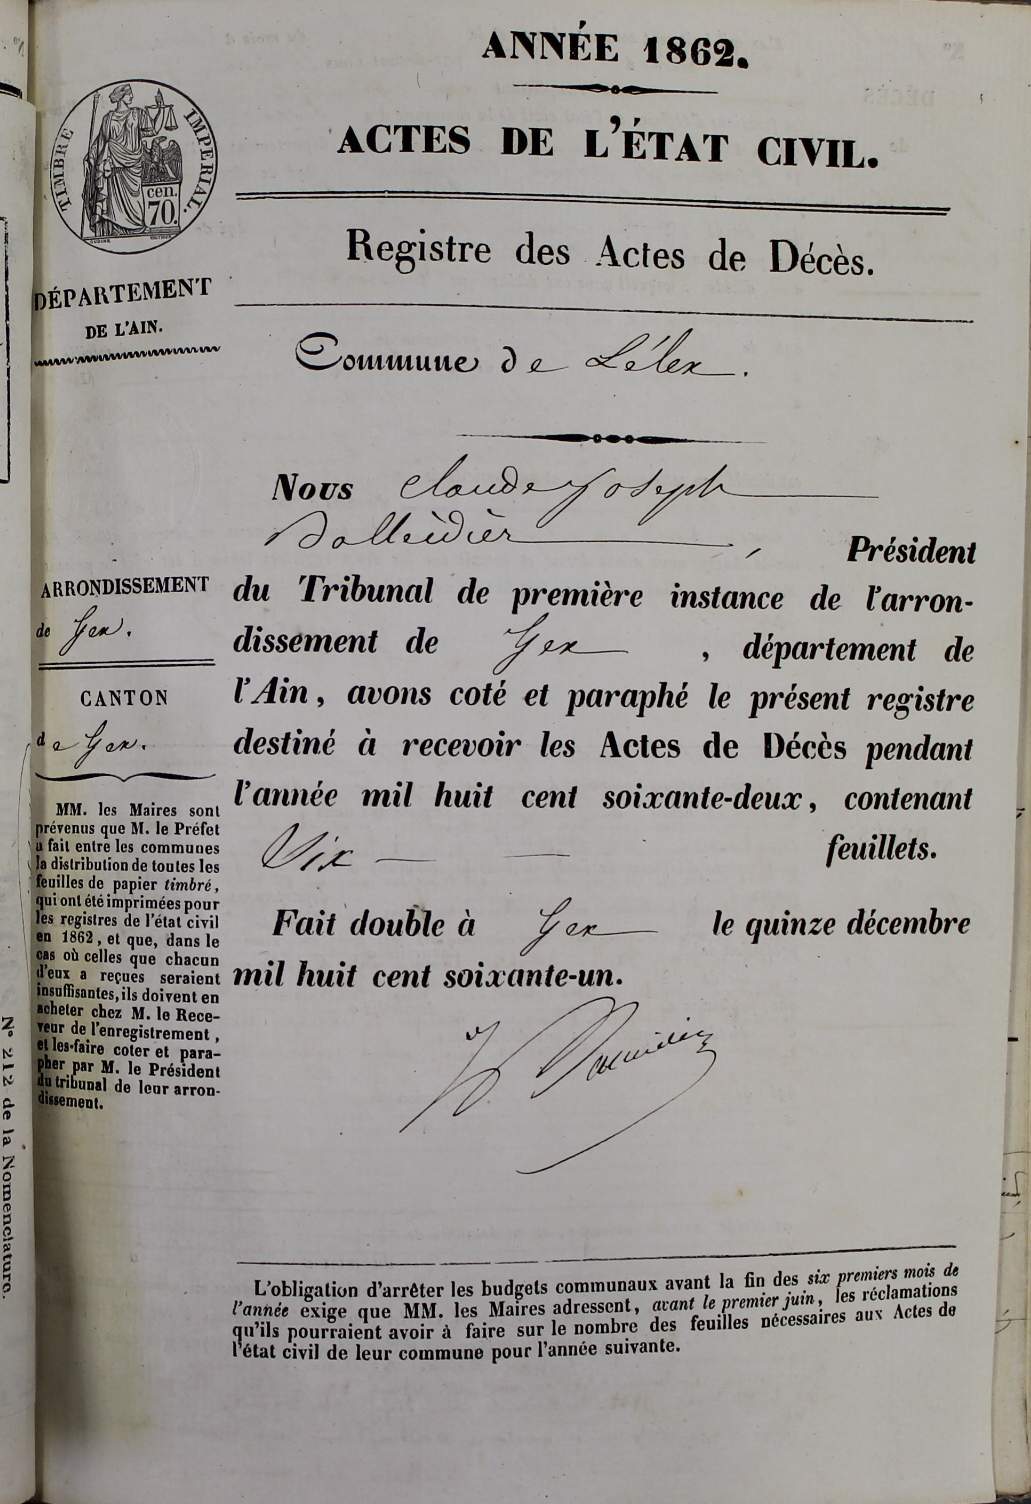 ANNÉE 1862.
ACTES DE L'ÉTAT CIVIL.
TIMBRE IMPERIAL.
cen.
70.
Registre des Actes de Décès.
DÉPARTEMENT
DE L'AIN.
Commune de Lélex.
Nous Claude Joseph
, Président
du Tribunal de première instance de l'arron-
dissement de Gex, département de
l'Ain, avons coté et paraphé le présent registre
destiné à recevoir les Actes de Décès pendant
l'année mil huit cent soixante-deux, contenant
Six feuillets.
Fait double à Gex le quinze décembre
mil huit cent soixante-un.
ARRONDISSEMENT
de Gex.
CANTON
de Gex.
MM. les Maires sont
prévenus que M. le Préfet
a fait entre les communes
la distribution de toutes les
feuilles de papier timbré,
qui ont été imprimées pour
les registres de l'état civil
en 1862, et que, dans le
cas où celles que chacun
d'eux a reçues seraient
insuffisantes, ils doivent en
acheter chez M. le Rece-
veur de l'enregistrement,
et les faire coter et para-
pher par M. le Président
du tribunal de leur arron-
dissement.
L'obligation d'arrêter les budgets communaux avant la fin des six premiers mois de
l'année exige que MM. les Maires adressent, avant le premier juin, les réclamations
qu'ils pourraient avoir à faire sur le nombre des feuilles nécessaires aux Actes de
l'état civil de leur commune pour l'année suivante.
N° 212 de la Nomenclature.